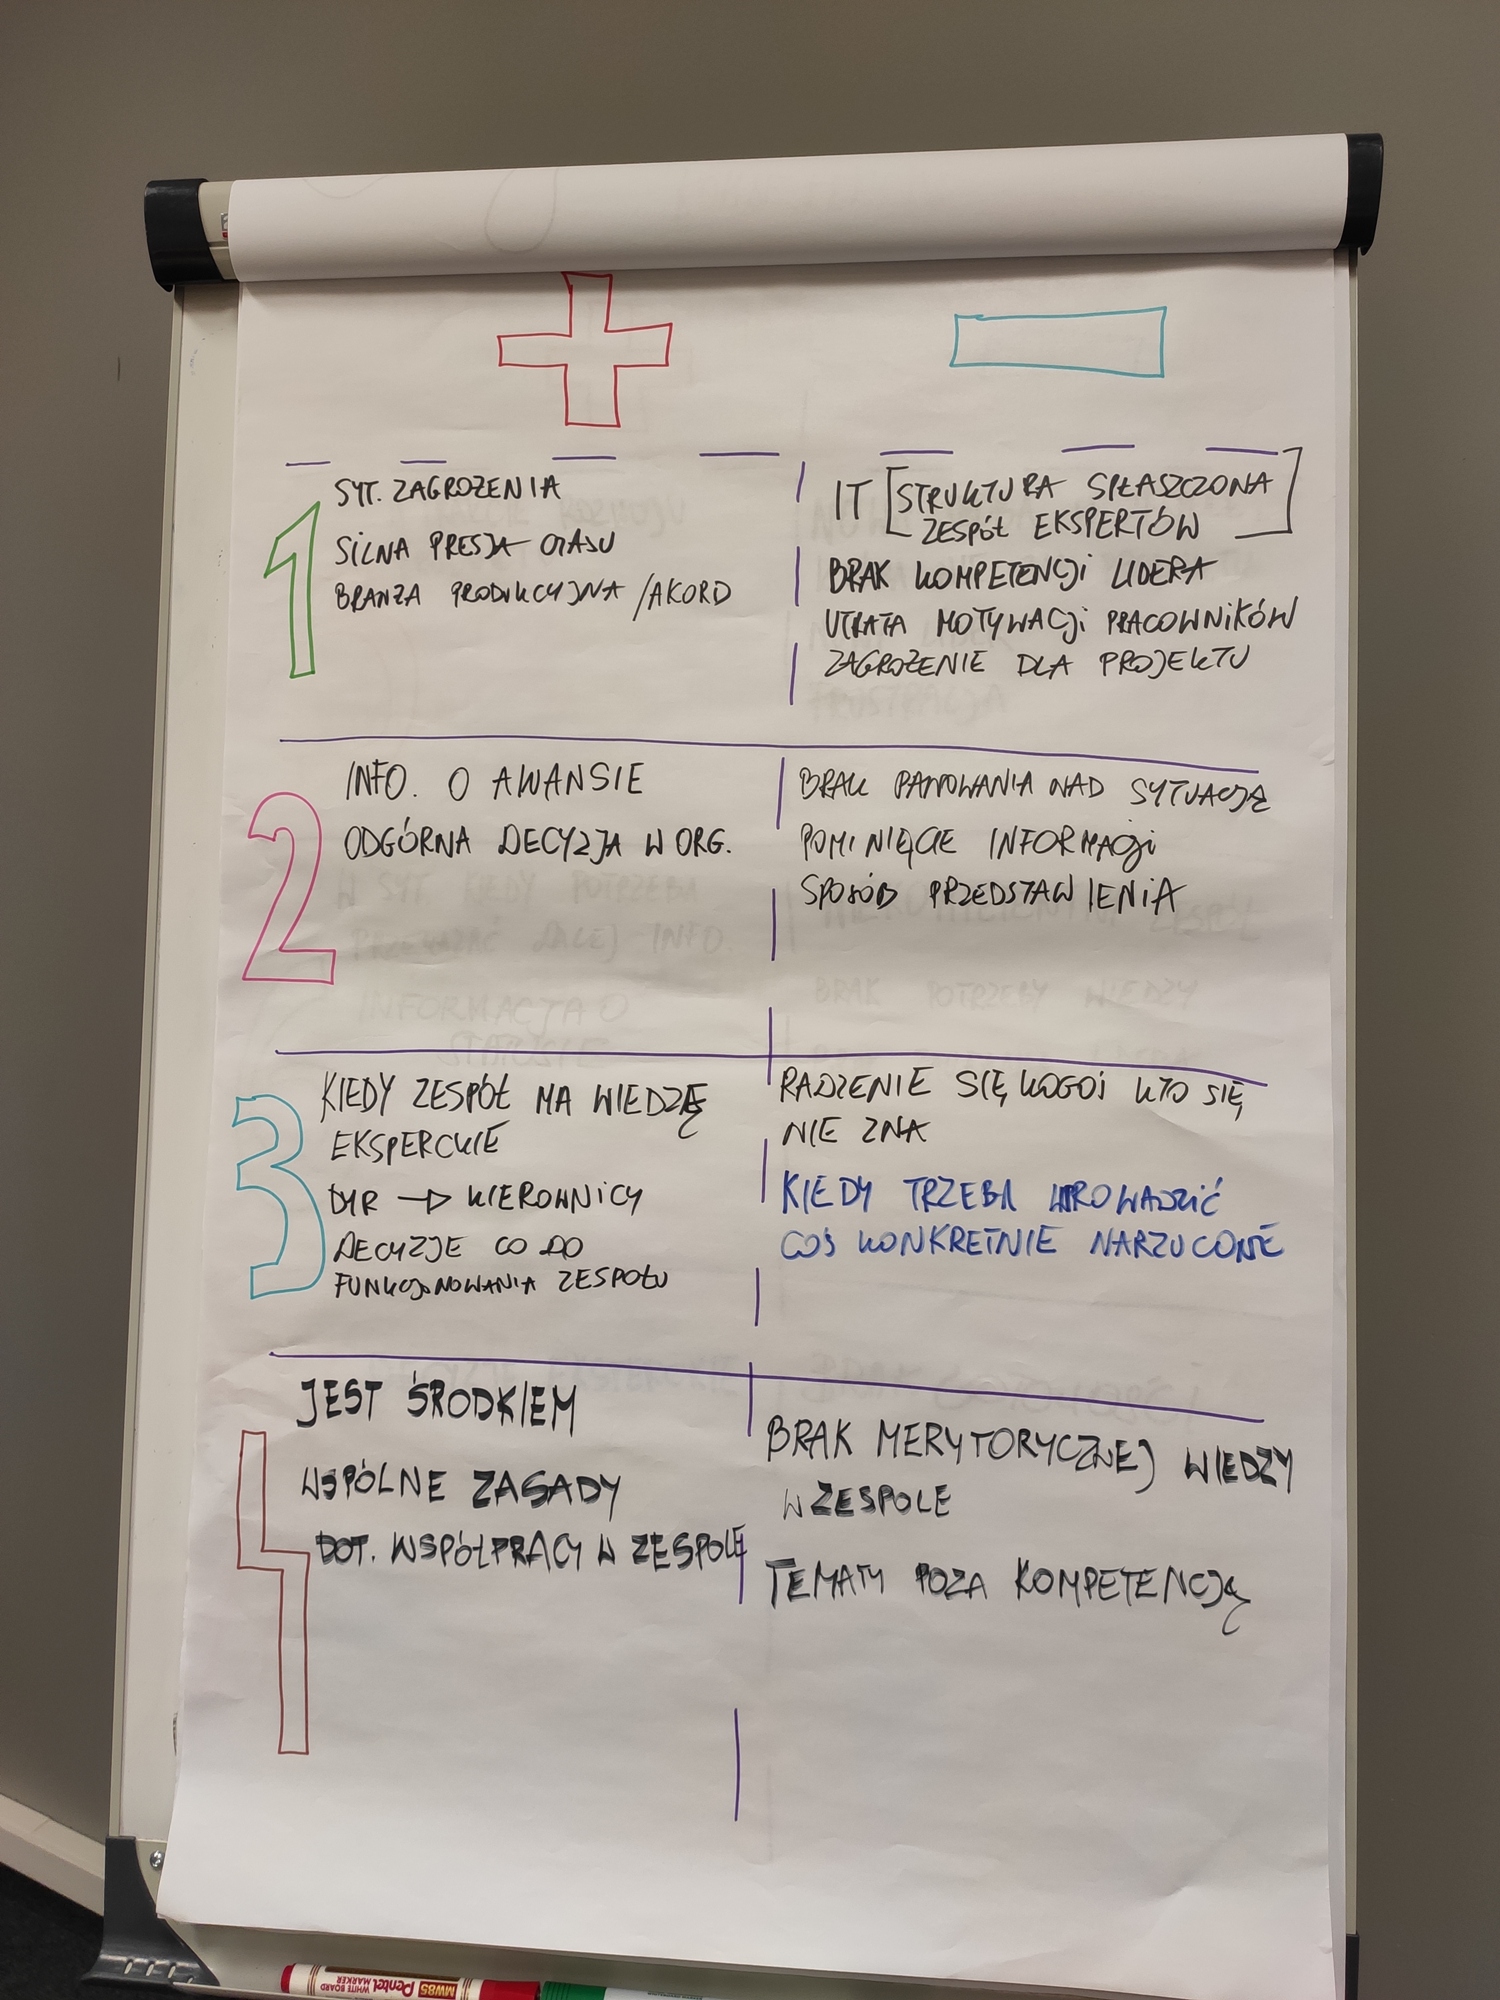 + −
1
SYT. ZAGROŻENIA
SILNA PRESJA CZASU
BRANŻA PRODUKCYJNA /AKORD
IT [STRUKTURA SPŁASZCZONA
ZESPÓŁ EKSPERTÓW]
BRAK KOMPETENCJI LIDERA
UTRATA MOTYWACJI PRACOWNIKÓW
ZAGROŻENIE DLA PROJEKTU
2
INFO. O AWANSIE
ODGÓRNA DECYZJA W ORG.
BRAK PANOWANIA NAD SYTUACJĄ
POMINIĘCIE INFORMACJI
SPOSÓB PRZEDSTAWIENIA
3
KIEDY ZESPÓŁ MA WIEDZĘ
EKSPERCKIE
DYR → KIEROWNICY
DECYZJE CO DO
FUNKCJONOWANIA ZESPOŁU
RADZENIE SIĘ KOGOŚ KTO SIĘ
NIE ZNA
KIEDY TRZEBA WPROWADZIĆ
COŚ KONKRETNIE NARZUCONE
4
JEST ŚRODKIEM
WSPÓLNE ZASADY
DOT. WSPÓŁPRACY W ZESPOLE
BRAK MERYTORYCZNEJ WIEDZY
W ZESPOLE
TEMATY POZA KOMPETENCJĄ
Pentel MW85
WHITE BOARD
MARKER